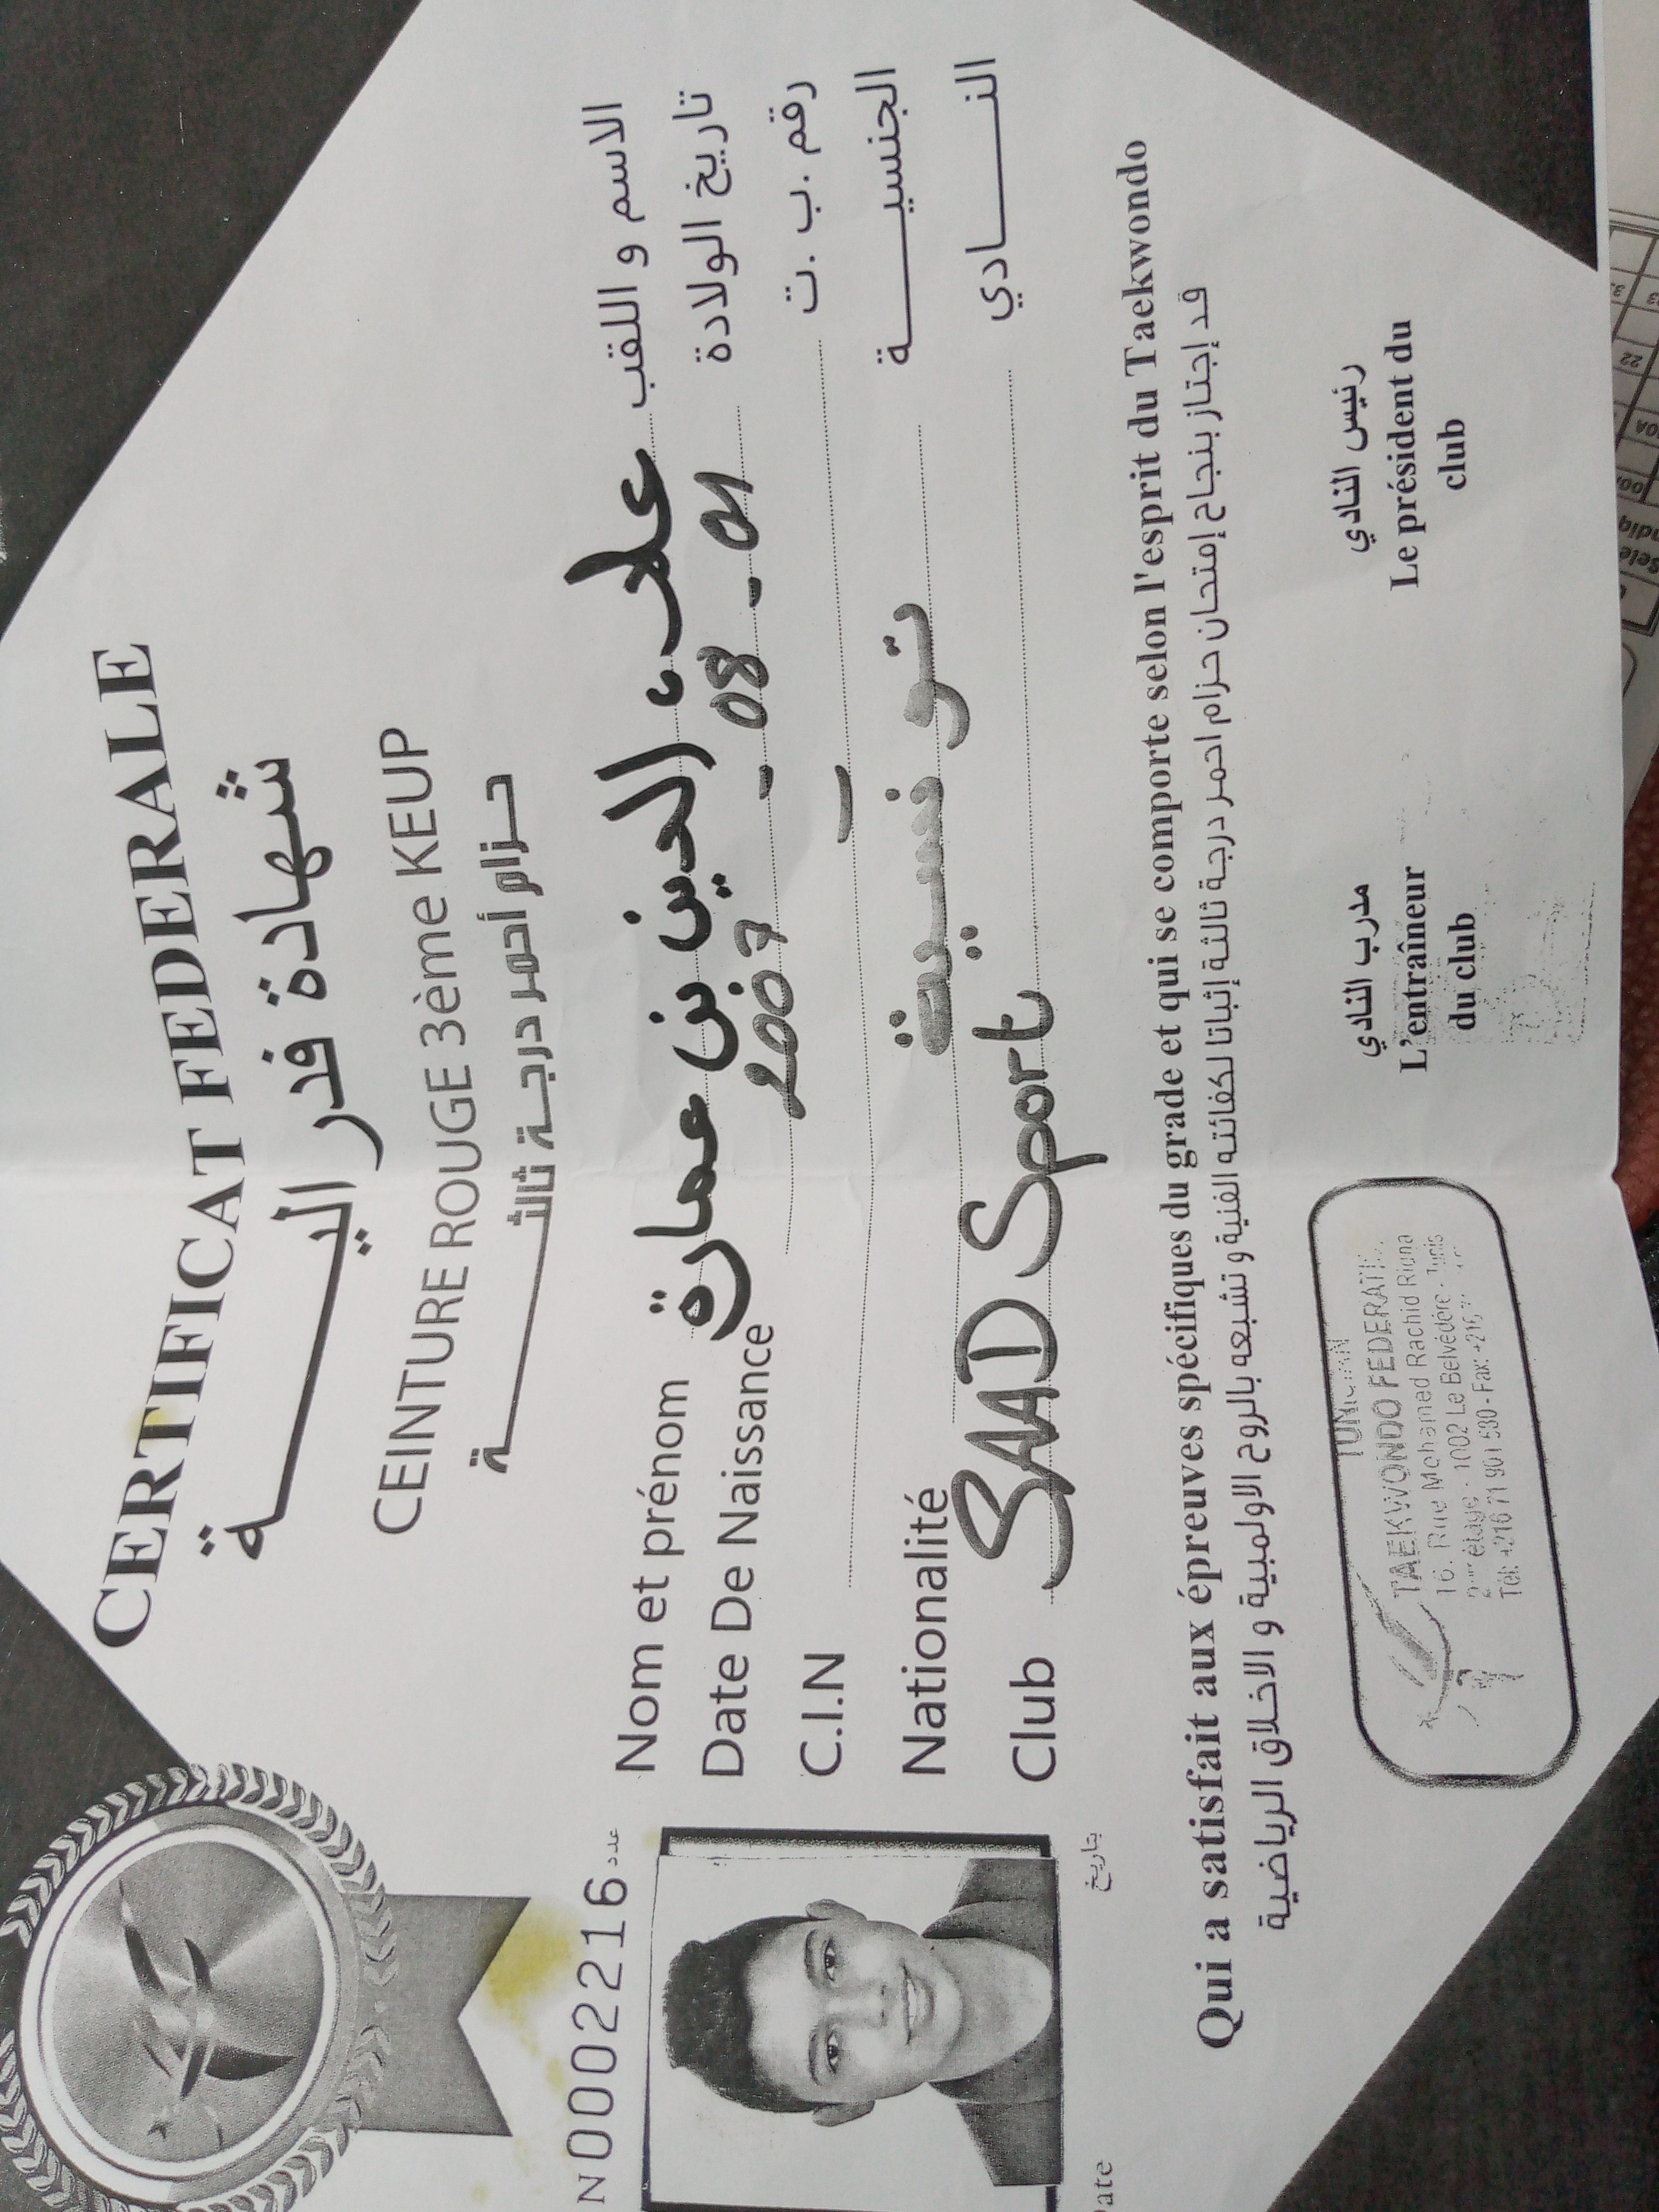 CERTIFICAT FEDERALE
شهادة فدراليــــــــة
CEINTURE ROUGE 3ème KEUP
حـزام أحمر درجـة ثالثـــــــة
N0002216 عدد
Nom et prénom علاء الدين بن عمارة الاسم و اللقب
Date De Naissance 2007 - 08 - 01 تاريخ الولادة
C.I.N رقم .ب .ت
Nationalité تونسية الجنسيــــــة
Club SAAD Sport النــــادي
ate بتاريخ
Qui a satisfait aux épreuves spécifiques du grade et qui se comporte selon l'esprit du Taekwondo
قد إجتاز بنجاح إمتحان حزام احمر درجة ثالثة إثباتا لكفائته الفنية و تشبعه بالروح الاولمبية و الاخلاق الرياضية
مدرب النادي رئيس النادي
L'entraîneur Le président du
du club club
TUNISIAN
TAEKWONDO FEDERATI
16. Rue Mohamed Rachid Ridha
étage - 1002 Le Belvédère - Tunis
Tél: +216 71 901 530 - Fax: +216